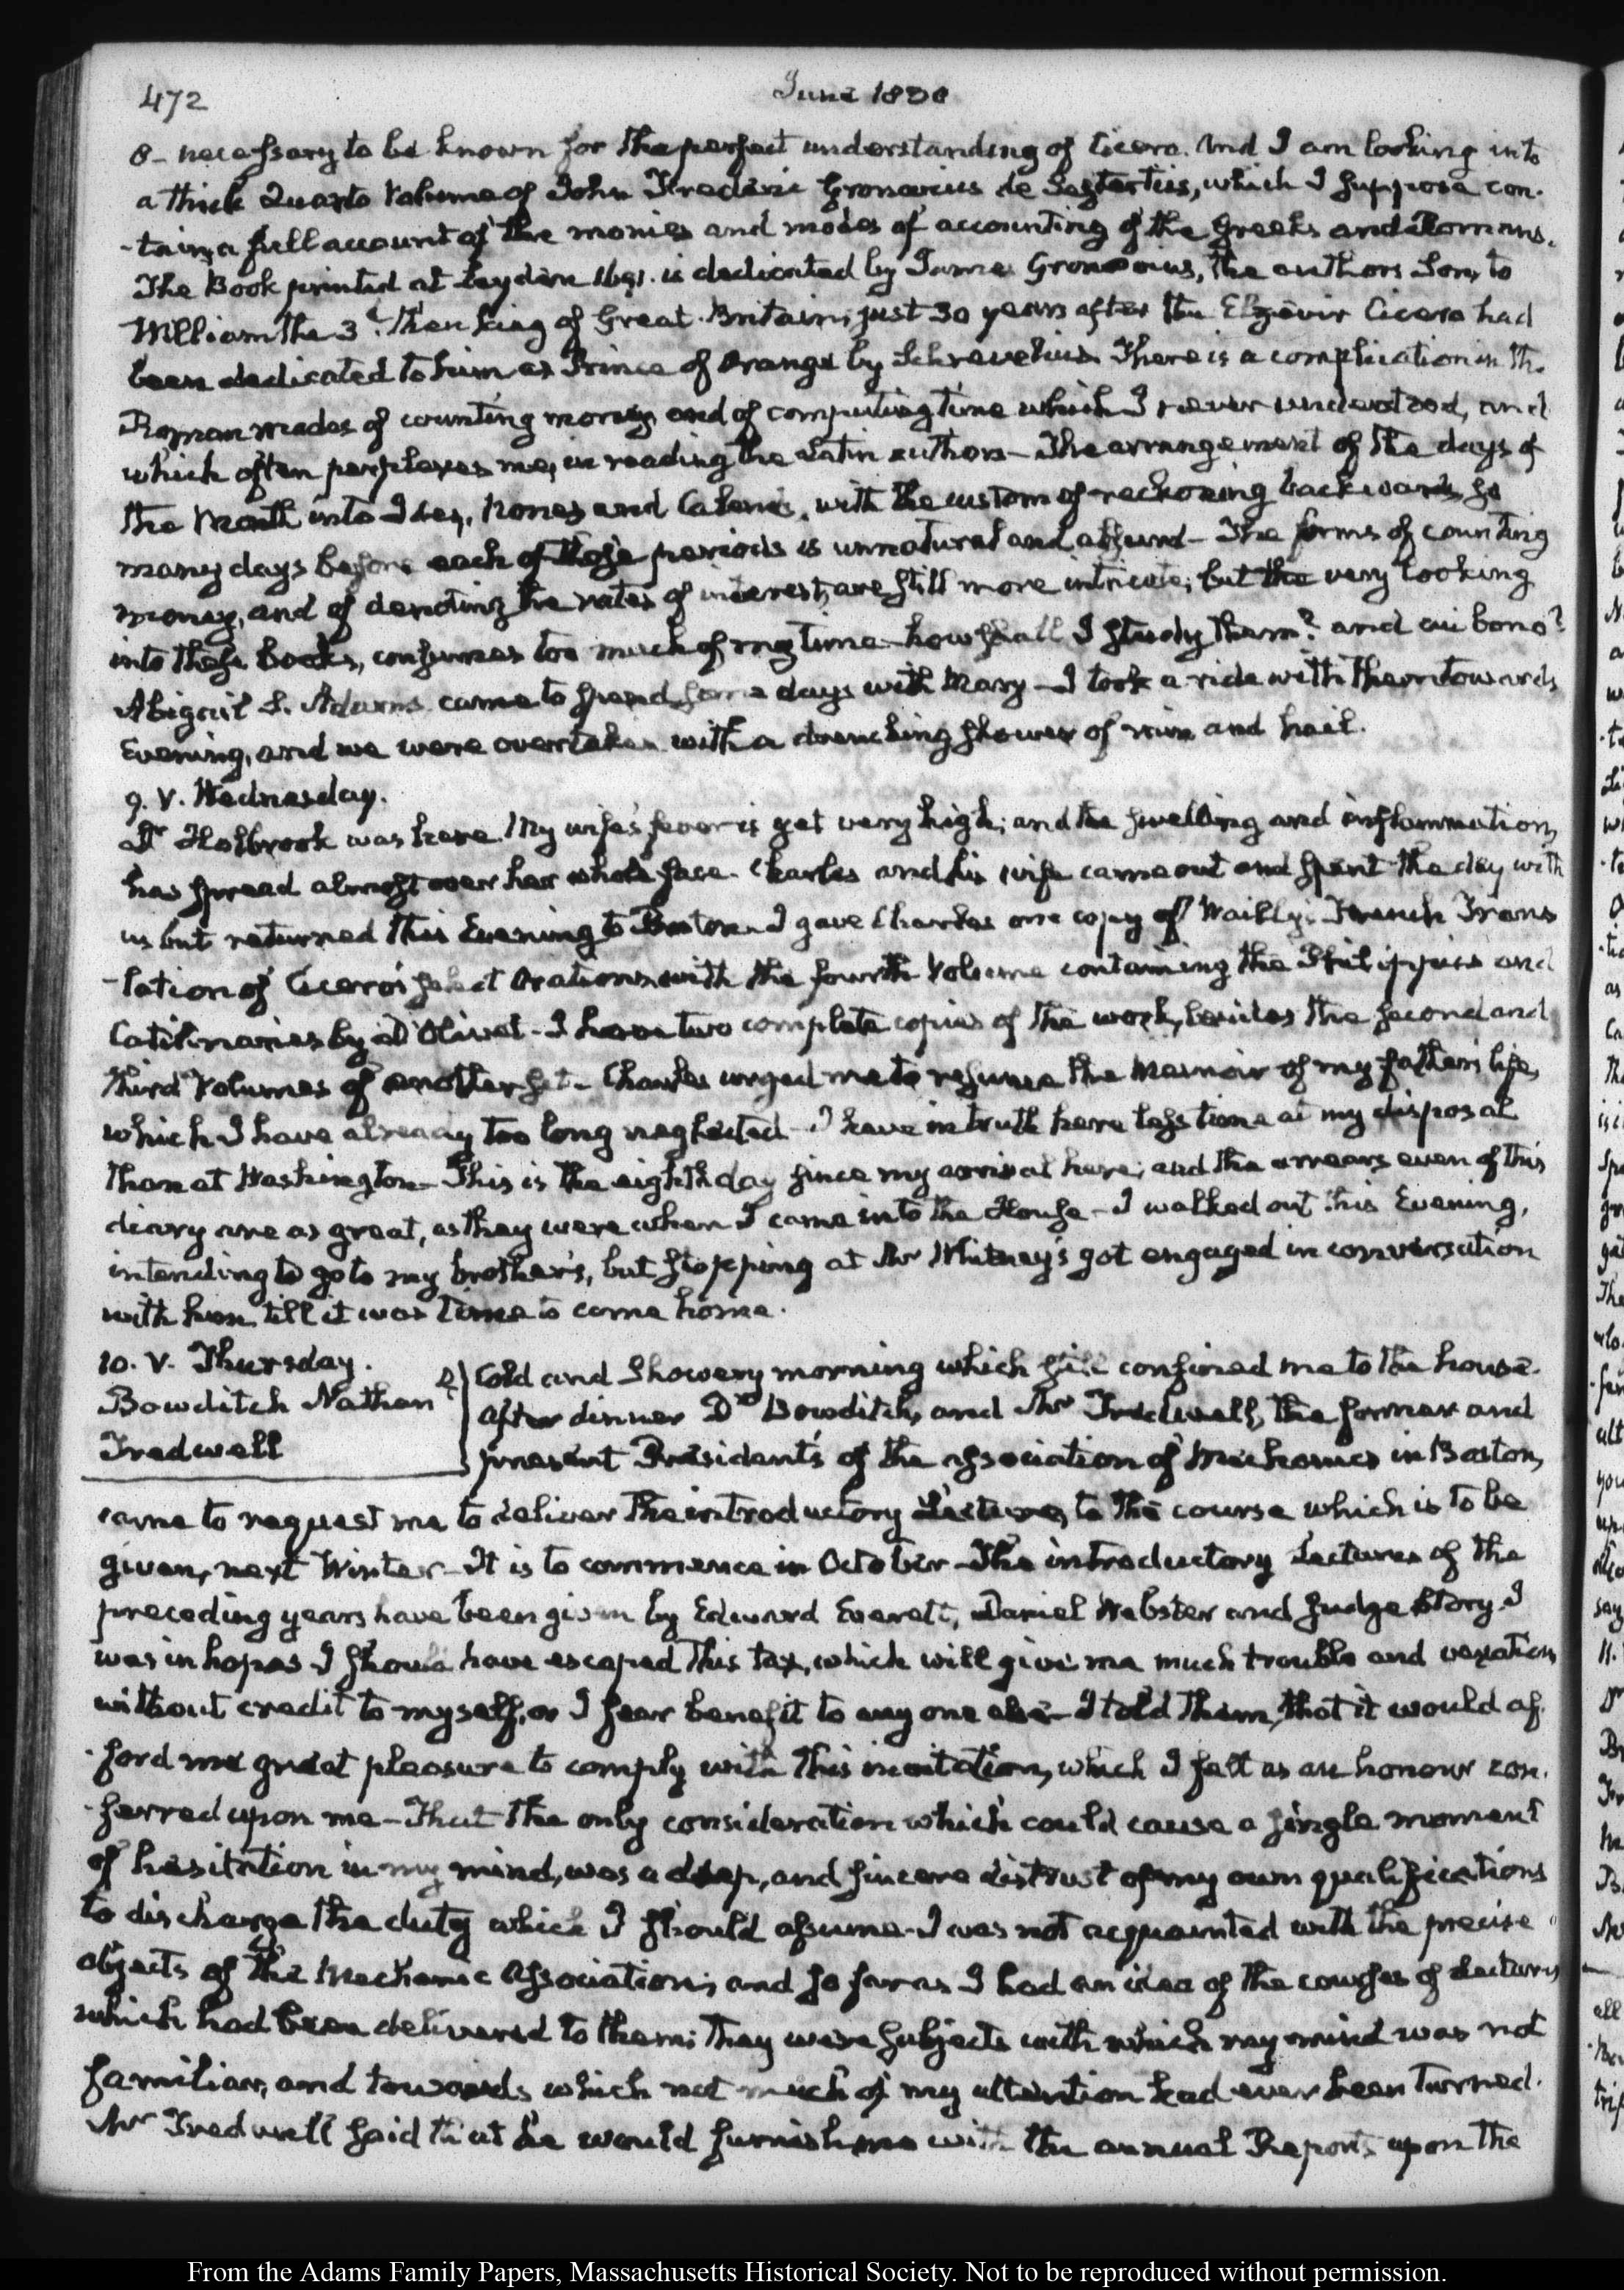 472
June 1830
8- necessary to be known for the perfect understanding of Cicero. And I am looking into
a thick Quarto Volume of John Frederic Gronovius de Sestertiis, which I suppose con-
-tains a full account of the monies and modes of accounting of the Greeks and Romans.
The Book printed at Leyden 1691. is dedicated by James Gronovius, the authors Son, to
William the 3d. then king of Great-Britain, just 30 years after the Elzevir Cicero had
been dedicated to him as Prince of Orange by Schrevelius There is a complication in the
Roman modes of counting money, and of computing time which I never understood, and
which often perplexes me, in reading the Latin authors- The arrangement of the days of
the Month into Ides, Nones and Calends, with the custom of reckoning backwards so
many days before each of those periods is unnatural and absurd- The forms of counting
money, and of denoting the rates of interest, are still more intricate; but the very looking
into these Books, consumes too much of my time- how shall I study them? and cui bono?
Abigail S. Adams came to spend some days with Mary- I took a ride with them towards
Evening, and we were overtaken with a drenching shower of rain and hail.
9. V. Wednesday.
Dr Holbrook was here. My wife's fever is yet very high; and the swelling and inflammation,
has spread almost over her whole face. Charles and his wife came out and spent the day with
us but returned this Evening to Boston. I gave Charles one copy of Wailly's French Trans
-lation of Cicero's select Orations, with the fourth Volume containing the Philippics and
Catilinaries by D'Olivet- I have two complete copies of the work, besides the second and
third Volumes of another set- Charles urged me to resume the Memoir of my father's life,
which I have already too long neglected- I have in truth here less time at my disposal
than at Washington- This is the eighth day since my arrival here, and the arrears even of this
diary are as great, as they were when I came into the House- I walked out this Evening,
intending to go to my brother's, but stopping at Mr Whitney's got engaged in conversation
with him till it was time to come home.
10. V. Thursday.
Bowditch Nathan Dr
Tredwell
Cold and Showery morning which still confined me to the house.
After dinner Dr Bowditch, and Mr Tredwell, the former and
present Presidents of the Association of Mechanics in Boston,
came to request me to deliver the introductory Lecture, to the course which is to be
given, next Winter- It is to commence in October- The introductory Lectures of the
preceding years have been given by Edward Everett, Daniel Webster and Judge Story. I
was in hopes I should have escaped this tax, which will give me much trouble and vexation
without credit to myself, or I fear benefit to any one else- I told them, that it would af-
-ford me great pleasure to comply with this invitation, which I felt as an honour con-
-ferred upon me- That the only consideration which could cause a single moment
of hesitation in my mind, was a deep, and sincere distrust of my own qualifications
to discharge the duty which I should assume- I was not acquainted with the precise
objects of the Mechanic Association; and so far as I had an idea of the courses of Lectures
which had been delivered to them; they were subjects with which my mind was not
familiar, and towards which not much of my attention had ever been turned.
Mr Tredwell said that he would furnish me with the annual Reports upon the
From the Adams Family Papers, Massachusetts Historical Society. Not to be reproduced without permission.